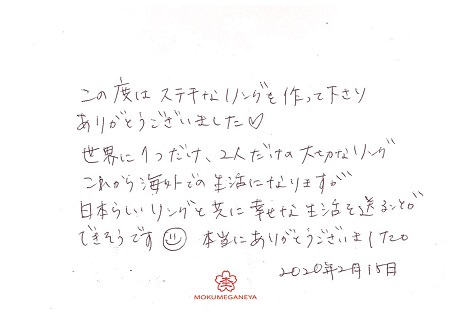 この度はステキなリングを作って下さり
ありがとうございました♡
世界に1つだけ、2人だけの大切なリング
これから海外での生活になりますが
日本らしいリングと共に幸せな生活を送ることが
できそうです☺ 本当にありがとうございました。
2020年2月15日
MOKUMEGANEYA